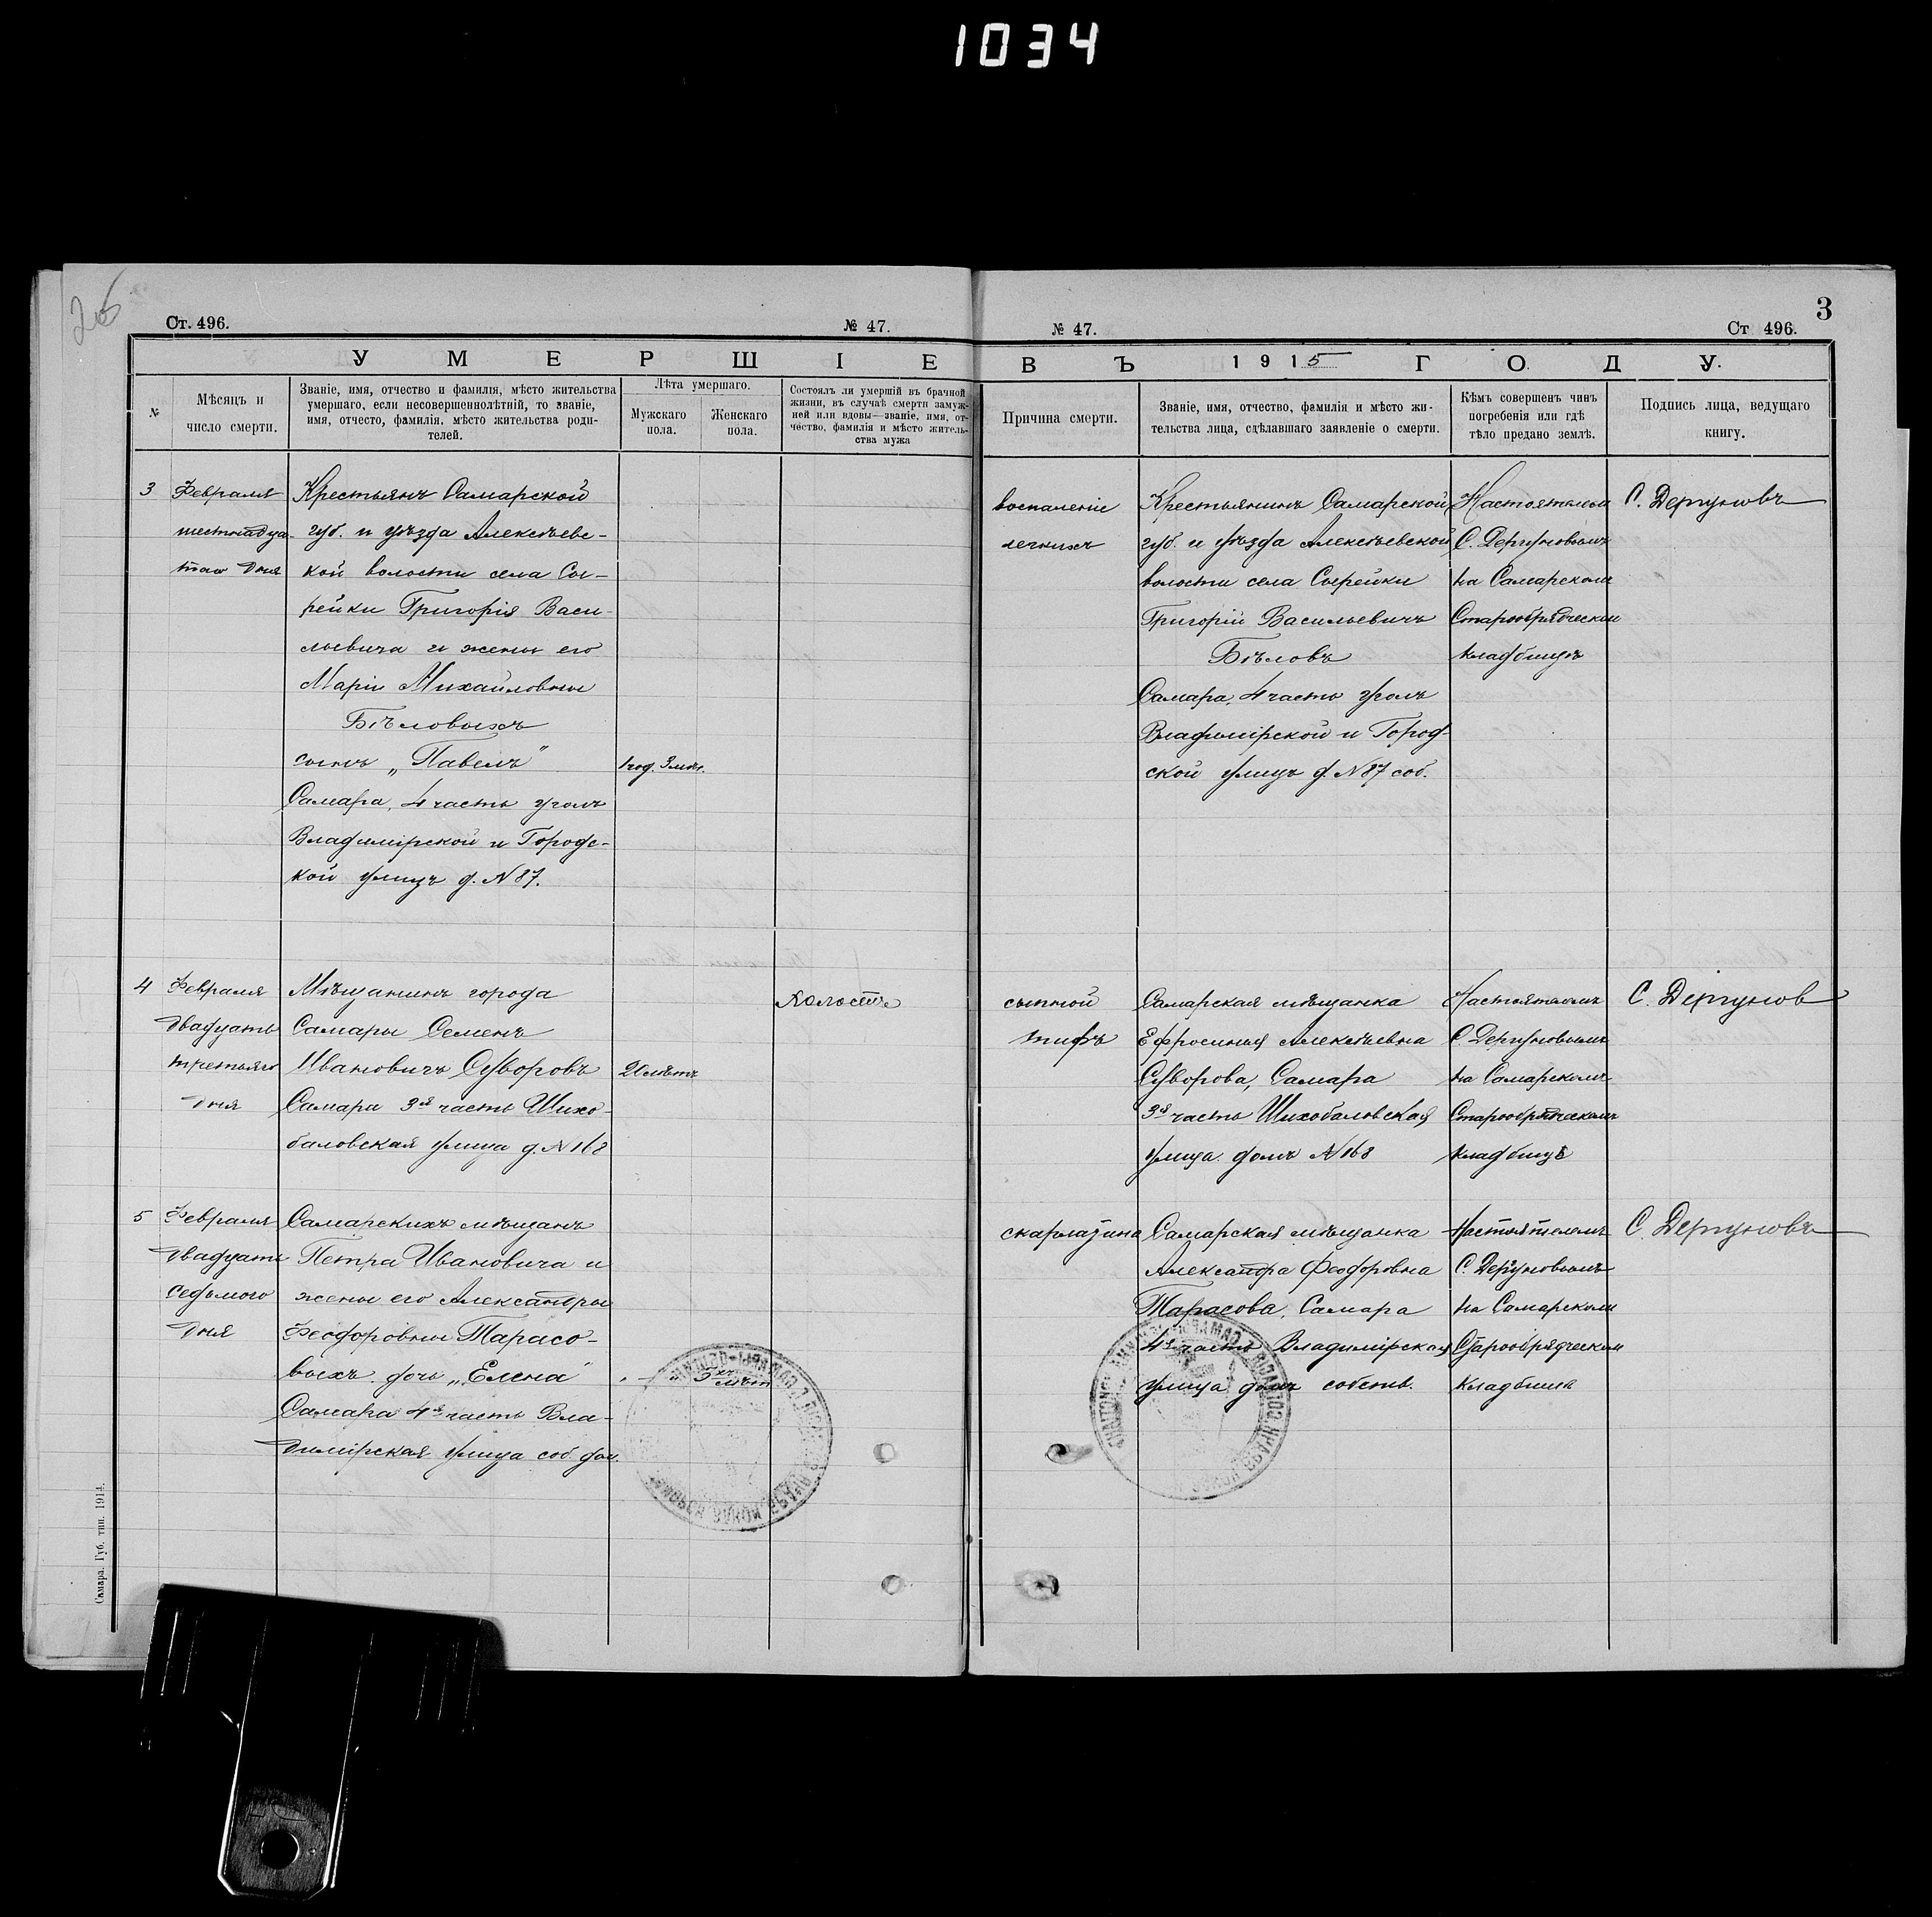 1034
26
Ст. 496.
№ 47.
УМЕРШІЕ
№
Мѣсяцъ и
число смерти.
Званіе, имя, отчество и фамилія, мѣсто жительства
умершаго, если несовершеннолѣтній, то званіе,
имя, отчесто, фамилія, мѣсто жительства роди-
телей.
Лѣта умершаго.
Мужскаго
пола.
Женскаго
пола.
Состоялъ ли умершій въ брачной
жизни, въ случаѣ смерти замуж-
ней или вдовы—званіе, имя, от-
чество, фамилія и мѣсто житель-
ства мужа
3
Февраля
шестнадца-
таго дня
Крестьянъ Самарской
губ. и уѣзда Алексѣевс-
кой волости села Сы-
рейки Григорія Васи-
льевича и жены его
Маріи Михайловны
Бѣловыхъ
сынъ „Павелъ"
Самара, 4 часть уголъ
Владимірской и Городс-
кой улицъ д. N 87.
1 год. 3 мѣс.
4
Февраля
двадцать
третьяго
дня
Мѣщанинъ города
Самары Семенъ
Ивановичъ Суворовъ
Самара 3я часть Шихо-
баловская улица д. N 168
20 лѣтъ
Холостъ
5
Февраля
двадцать
седьмого
дня
Самарскихъ мѣщанъ
Петра Ивановича и
жены его Александры
Феодоровны Тарасо-
выхъ дочь „Елена"
Самара 4я часть Вла-
димірская улица соб. дом.
5 лѣт
Самара. Губ. тип. 1914.
3
№ 47.
Ст 496.
ВЪ 1915 ГОДУ.
Причина смерти.
Званіе, имя, отчество, фамилія и мѣсто жи-
тельства лица, сдѣлавшаго заявленіе о смерти.
Кѣмъ совершенъ чинъ
погребенія или гдѣ
тѣло предано землѣ.
Подпись лица, ведущаго
книгу.
воспаленіе
легкихъ
Крестьянинъ Самарской
губ. и уѣзда Алексѣевской
волости села Сырейки
Григорій Васильевичъ
Бѣловъ
Самара, 4 часть уголъ
Владимірской и Город-
ской улицъ д. N 87 соб.
Настоятелем
С. Дергуновымъ
на Самарском
Старообрядческом
кладбищѣ
С. Дергуновъ
сыпной
тифъ
Самарская мѣщанка
Ефросинія Алексѣевна
Суворова, Самара
3я часть Шихобаловская
улица домъ N 168
Настоятелемъ
С. Дергуновымъ
на Самарскомъ
Старообрядческомъ
кладбищѣ
С. Дергунов
скарлатина
Самарская мѣщанка
Александра Феодоровна
Тарасова, Самара
4я часть Владимірская
улица домъ собств.
Настоятелемъ
С. Дергуновымъ
на Самарском
Старообрядческом
кладбищѣ
С. Дергуновъ